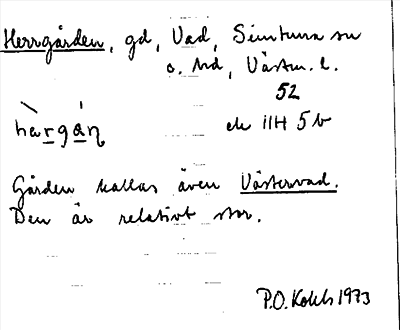 Herrgården, gd, Vad, Simtuna sn
o. hd, Västm. l.
52
hàrgán ek 11H 5b
Gården kallas även Västervad.
Den är relativt stor.
P.O. 1973